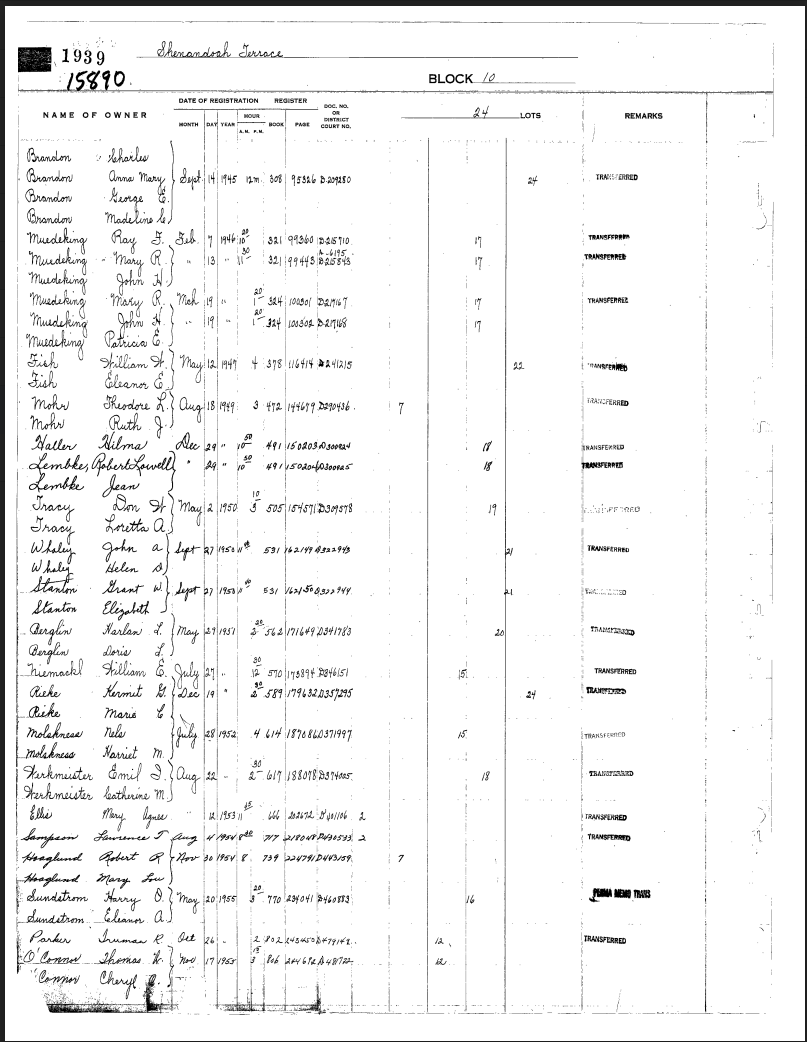 1939 Shenandoah Terrace
15890
BLOCK 10
DATE OF REGISTRATION REGISTER DOC. NO. OR DISTRICT COURT NO.
NAME OF OWNER MONTH DAY YEAR HOUR A.M. P.M. BOOK PAGE 24 LOTS REMARKS
Brandon Charles
Brandon Anna Mary Sept 14 1945 12m 308 95326 D.209280 24 TRANSFERRED
Brandon George E.
Brandon Madeline C.
Muedeking Ray F. Feb. 7 1946 10 20 321 99360 D215710 17 TRANSFERRED
Muedeking Mary R. " 13 " 11 30 321 99443 D215843 17 TRANSFERRED
Muedeking John H.
Muedeking Mary R. Mch 19 " 1 20 324 100301 D217167 17 TRANSFERRED
Muedeking John H. " 19 " 1 20 324 100302 D217168 17
Muedeking Patricia E.
Fish William W. May 12 1947 4 378 116414 D241215 22 TRANSFERRED
Fish Eleanor E.
Mohr Theodore L. Aug 18 1949 3 472 144679 D290436 7 TRANSFERRED
Mohr Ruth J.
Haller Hilma Dec 29 " 10 50 491 150203 D300824 18 TRANSFERRED
Lembke, Robert Lowell " 29 " 10 50 491 150204 D300825 18 TRANSFERRED
Lembke Jean
Tracy Don W. May 2 1950 3 10 505 154571 D309578 19 TRANSFERRED
Tracy Loretta A.
Whaley John A Sept 27 1950 11 40 531 162149 D322943 21 TRANSFERRED
Whaley Helen D
Stanton Grant W. Sept 27 1950 11 40 531 162150 D322944 21
Stanton Elizabeth
Berglin Harlan L. May 29 1951 2 20 562 171649 D341783 20 TRANSFERRED
Berglin Doris L.
Niemackl William E. July 27 " 12 30 570 173894 D346151 15 TRANSFERRED
Rieke Kermit G. Dec 19 " 2 30 589 179632 D357295 24 TRANSFERRED
Rieke Marie C
Molskness Nels July 28 1952 4 614 187086 D371997 15 TRANSFERRED
Molskness Harriet M.
Werkmeister Emil J. Aug 22 " 2 30 617 188078 D374005 18 TRANSFERRED
Werkmeister Catherine M.
Ellis Mary Agnes " 12 1953 11 45 666 202672 D401106 2 TRANSFERRED
Sampson Lawrence T Aug 4 1954 8 40 717 218048 D430533 2 TRANSFERRED
Hoaglund Robert R Nov 30 1954 8 739 224791 D443159 7
Hoaglund Mary Lou
Sundstrom Harry O. May 20 1955 3 20 770 234041 D460883 16 PERMA MEMO TRANS
Sundstrom Eleanor A.
Parker Truman R. Oct 26 " 2 802 243450 D479142 12 TRANSFERRED
O'Connor Thomas W. Nov 17 1955 3 15 806 244672 D481722 12
"Connor Cheryl C.